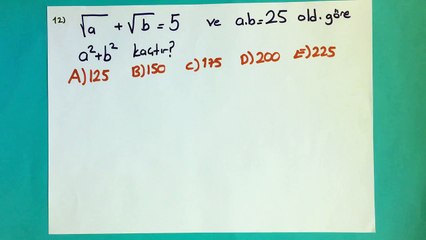 12) √a + √b = 5 ve a.b = 25 old. göre
a²+b² kaçtır?
A) 125 B) 150 C) 175 D) 200 E) 225